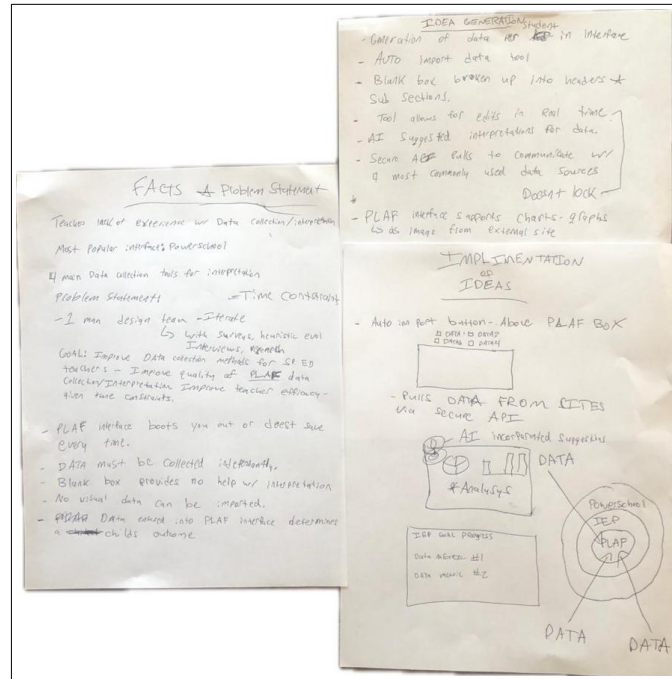 FACTS & Problem Statement
Teacher lack of experience w/ Data collection/interpretation
Most Popular interface: Powerschool
4 main Data collection tools for interpretation
Problem Statement:
- Time Constraint
- 1 man design team - Iterate
↳ with surveys, heuristic eval
Interviews, research
GOAL: Improve Data collection methods for SP.ED
teachers - Improve quality of PLAF data
Collection/Interpretation Improve teacher efficiency -
given time constraints.
- PLAF interface boots you out or doest save
every time.
- DATA must be collected independently.
- Blank box provides no help w/ interpretation
- No visual data can be imported.
- Data entered into PLAF interface determines
a childs outcome
IDEA GENERATION
- Generation of data per student in interface
- AUTO import data tool
- Blank box broken up into headers &
Sub sections.
- Tool allows for edits in Real time
- AI Suggested interpretations for data.
- Secure Pulls to communicate w/
4 most commonly used data sources
Doesn't lock
- PLAF interface supports charts - graphs
↳ as image from external site
IMPLIMENTATION
OF
IDEAS
- Auto import button - Above PLAF BOX
□ DATA1 □ DATA2
□ DATA3 □ DATA4
- Pulls DATA FROM SITES
via secure API
AI incorporated suggestions
*Analysys
DATA
Powerschool
IEP
PLAF
IEP GOAL PROGRESS
Data #1
Data #2
DATA
DATA